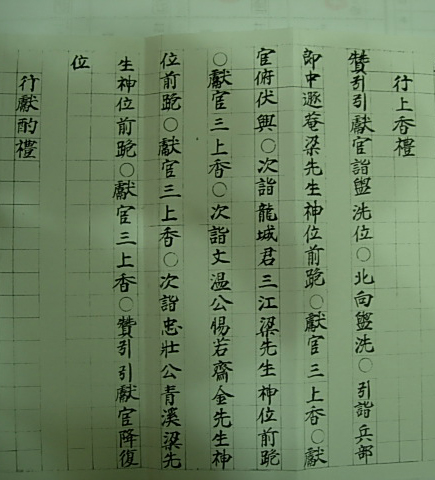 行上香禮
贊引引獻官詣盥洗位○北向盥洗○引詣兵部
郎中遯菴梁先生神位前跪○獻官三上香○獻
官俯伏興○次詣龍城君三江梁先生神位前跪
○獻官三上香○次詣文温公惕若齋金先生神
位前跪○獻官三上香○次詣忠壯公青溪梁先
生神位前跪○獻官三上香○贊引引獻官降復
位
行獻酌禮